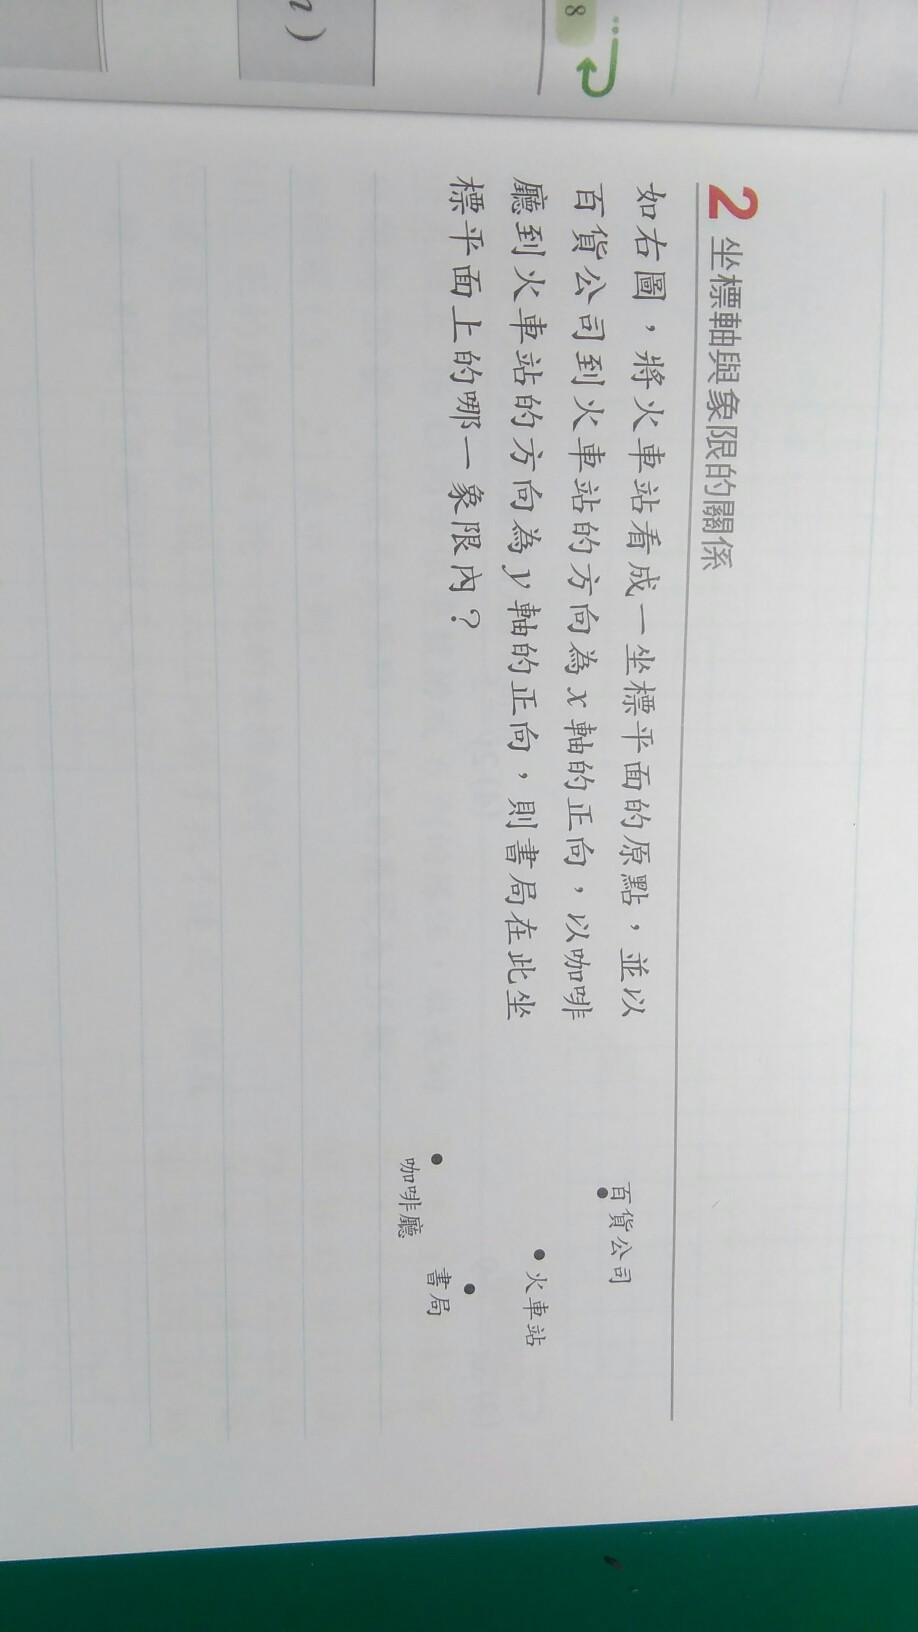 8
n )
2 坐標軸與象限的關係
如右圖，將火車站看成一坐標平面的原點，並以
百貨公司到火車站的方向為 x 軸的正向，以咖啡
廳到火車站的方向為 y 軸的正向，則書局在此坐
標平面上的哪一象限內？
百貨公司
火車站
書局
咖啡廳